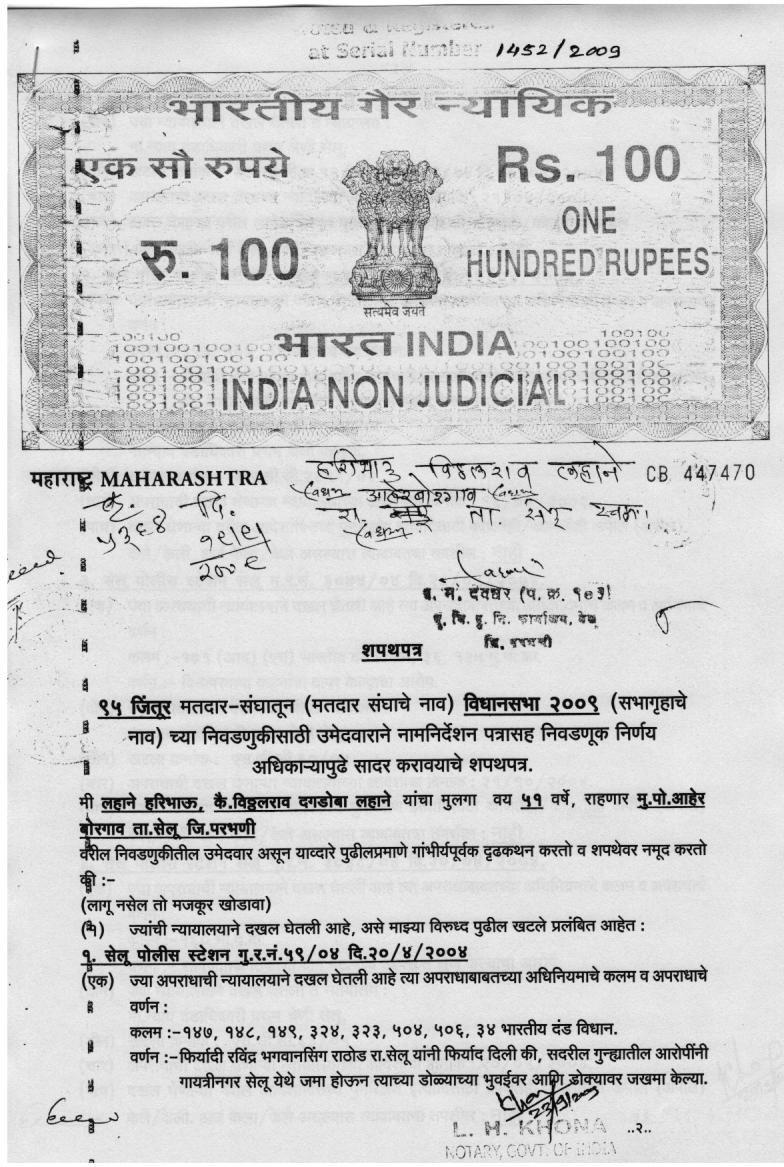 Noted & Registered
at Serial Number 1452/2009
भारतीय गैर न्यायिक
एक सौ रुपये
Rs. 100
रु. 100
ONE
HUNDRED RUPEES
सत्यमेव जयते
भारत INDIA
INDIA NON JUDICIAL
महाराष्ट्र MAHARASHTRA
हरिभाऊ विठ्ठलराव लहाने
CB 447470
आहेरबोरगाव
५३६४ दि.
शपथपत्र
९५ जिंतूर मतदार-संघातून (मतदार संघाचे नाव) विधानसभा २००९ (सभागृहाचे
नाव) च्या निवडणुकीसाठी उमेदवाराने नामनिर्देशन पत्रासह निवडणूक निर्णय
अधिकाऱ्यापुढे सादर करावयाचे शपथपत्र.
मी लहाने हरिभाऊ, कै.विठ्ठलराव दगडोबा लहाने यांचा मुलगा वय ५१ वर्षे, राहणार मु.पो.आहेर
बोरगाव ता.सेलू जि.परभणी
वरील निवडणुकीतील उमेदवार असून याव्दारे पुढीलप्रमाणे गांभीर्यपूर्वक दृढकथन करतो व शपथेवर नमूद करतो
की :-
(लागू नसेल तो मजकूर खोडावा)
(१) ज्यांची न्यायालयाने दखल घेतली आहे, असे माझ्या विरुध्द पुढील खटले प्रलंबित आहेत :
१. सेलू पोलीस स्टेशन गु.र.नं.५९/०४ दि.२०/४/२००४
(एक) ज्या अपराधाची न्यायालयाने दखल घेतली आहे त्या अपराधाबाबतच्या अधिनियमाचे कलम व अपराधाचे
वर्णन :
कलम :-१४७, १४८, १४९, ३२४, ३२३, ५०४, ५०६, ३४ भारतीय दंड विधान.
वर्णन :-फिर्यादी रविंद्र भगवानसिंग राठोड रा.सेलू यांनी फिर्याद दिली की, सदरील गुन्ह्यातील आरोपींनी
गायत्रीनगर सेलू येथे जमा होऊन त्याच्या डोळ्याच्या भुवईवर आणि डोक्यावर जखमा केल्या.
L. H. KHONA
..२..
NOTARY, GOVT. OF INDIA